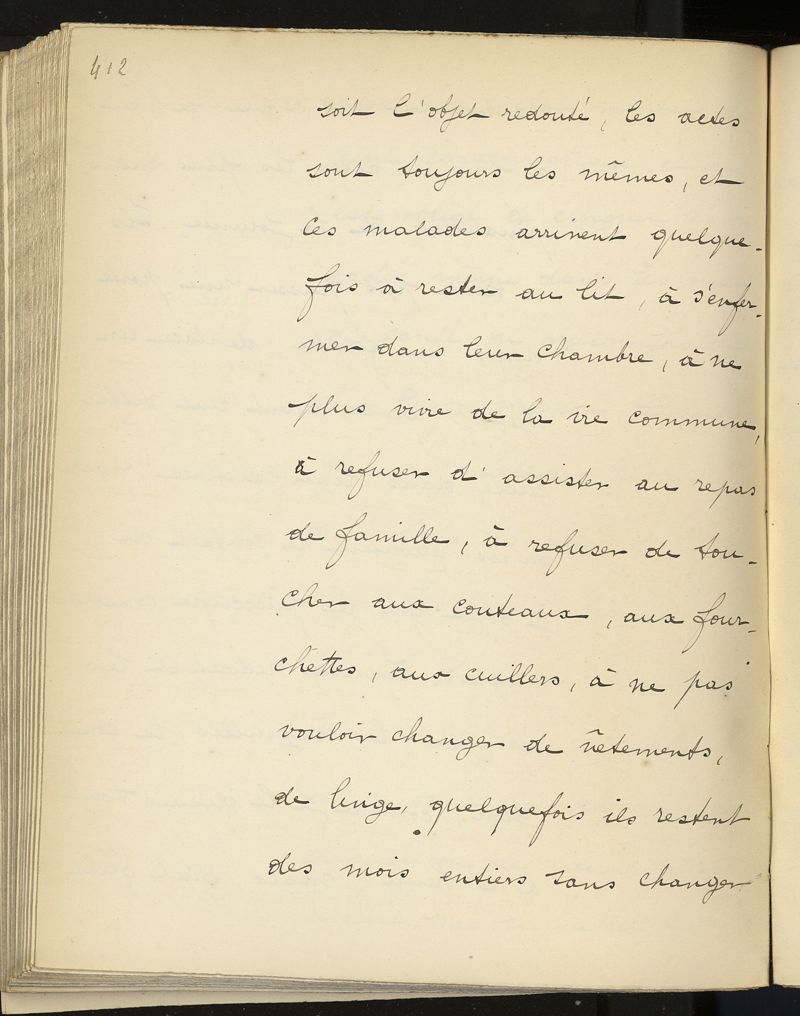 412
soit l'objet redouté, les actes
sont toujours les mêmes, et
ces malades arrivent quelque-
fois à rester au lit, à s'enfer-
mer dans leur chambre, à ne
plus vivre de la vie commune,
à refuser d'assister au repas
de famille, à refuser de tou-
cher aux couteaux, aux four-
chettes, aux cuillers, à ne pas
vouloir changer de vêtements,
de linge, quelquefois ils restent
des mois entiers sans changer